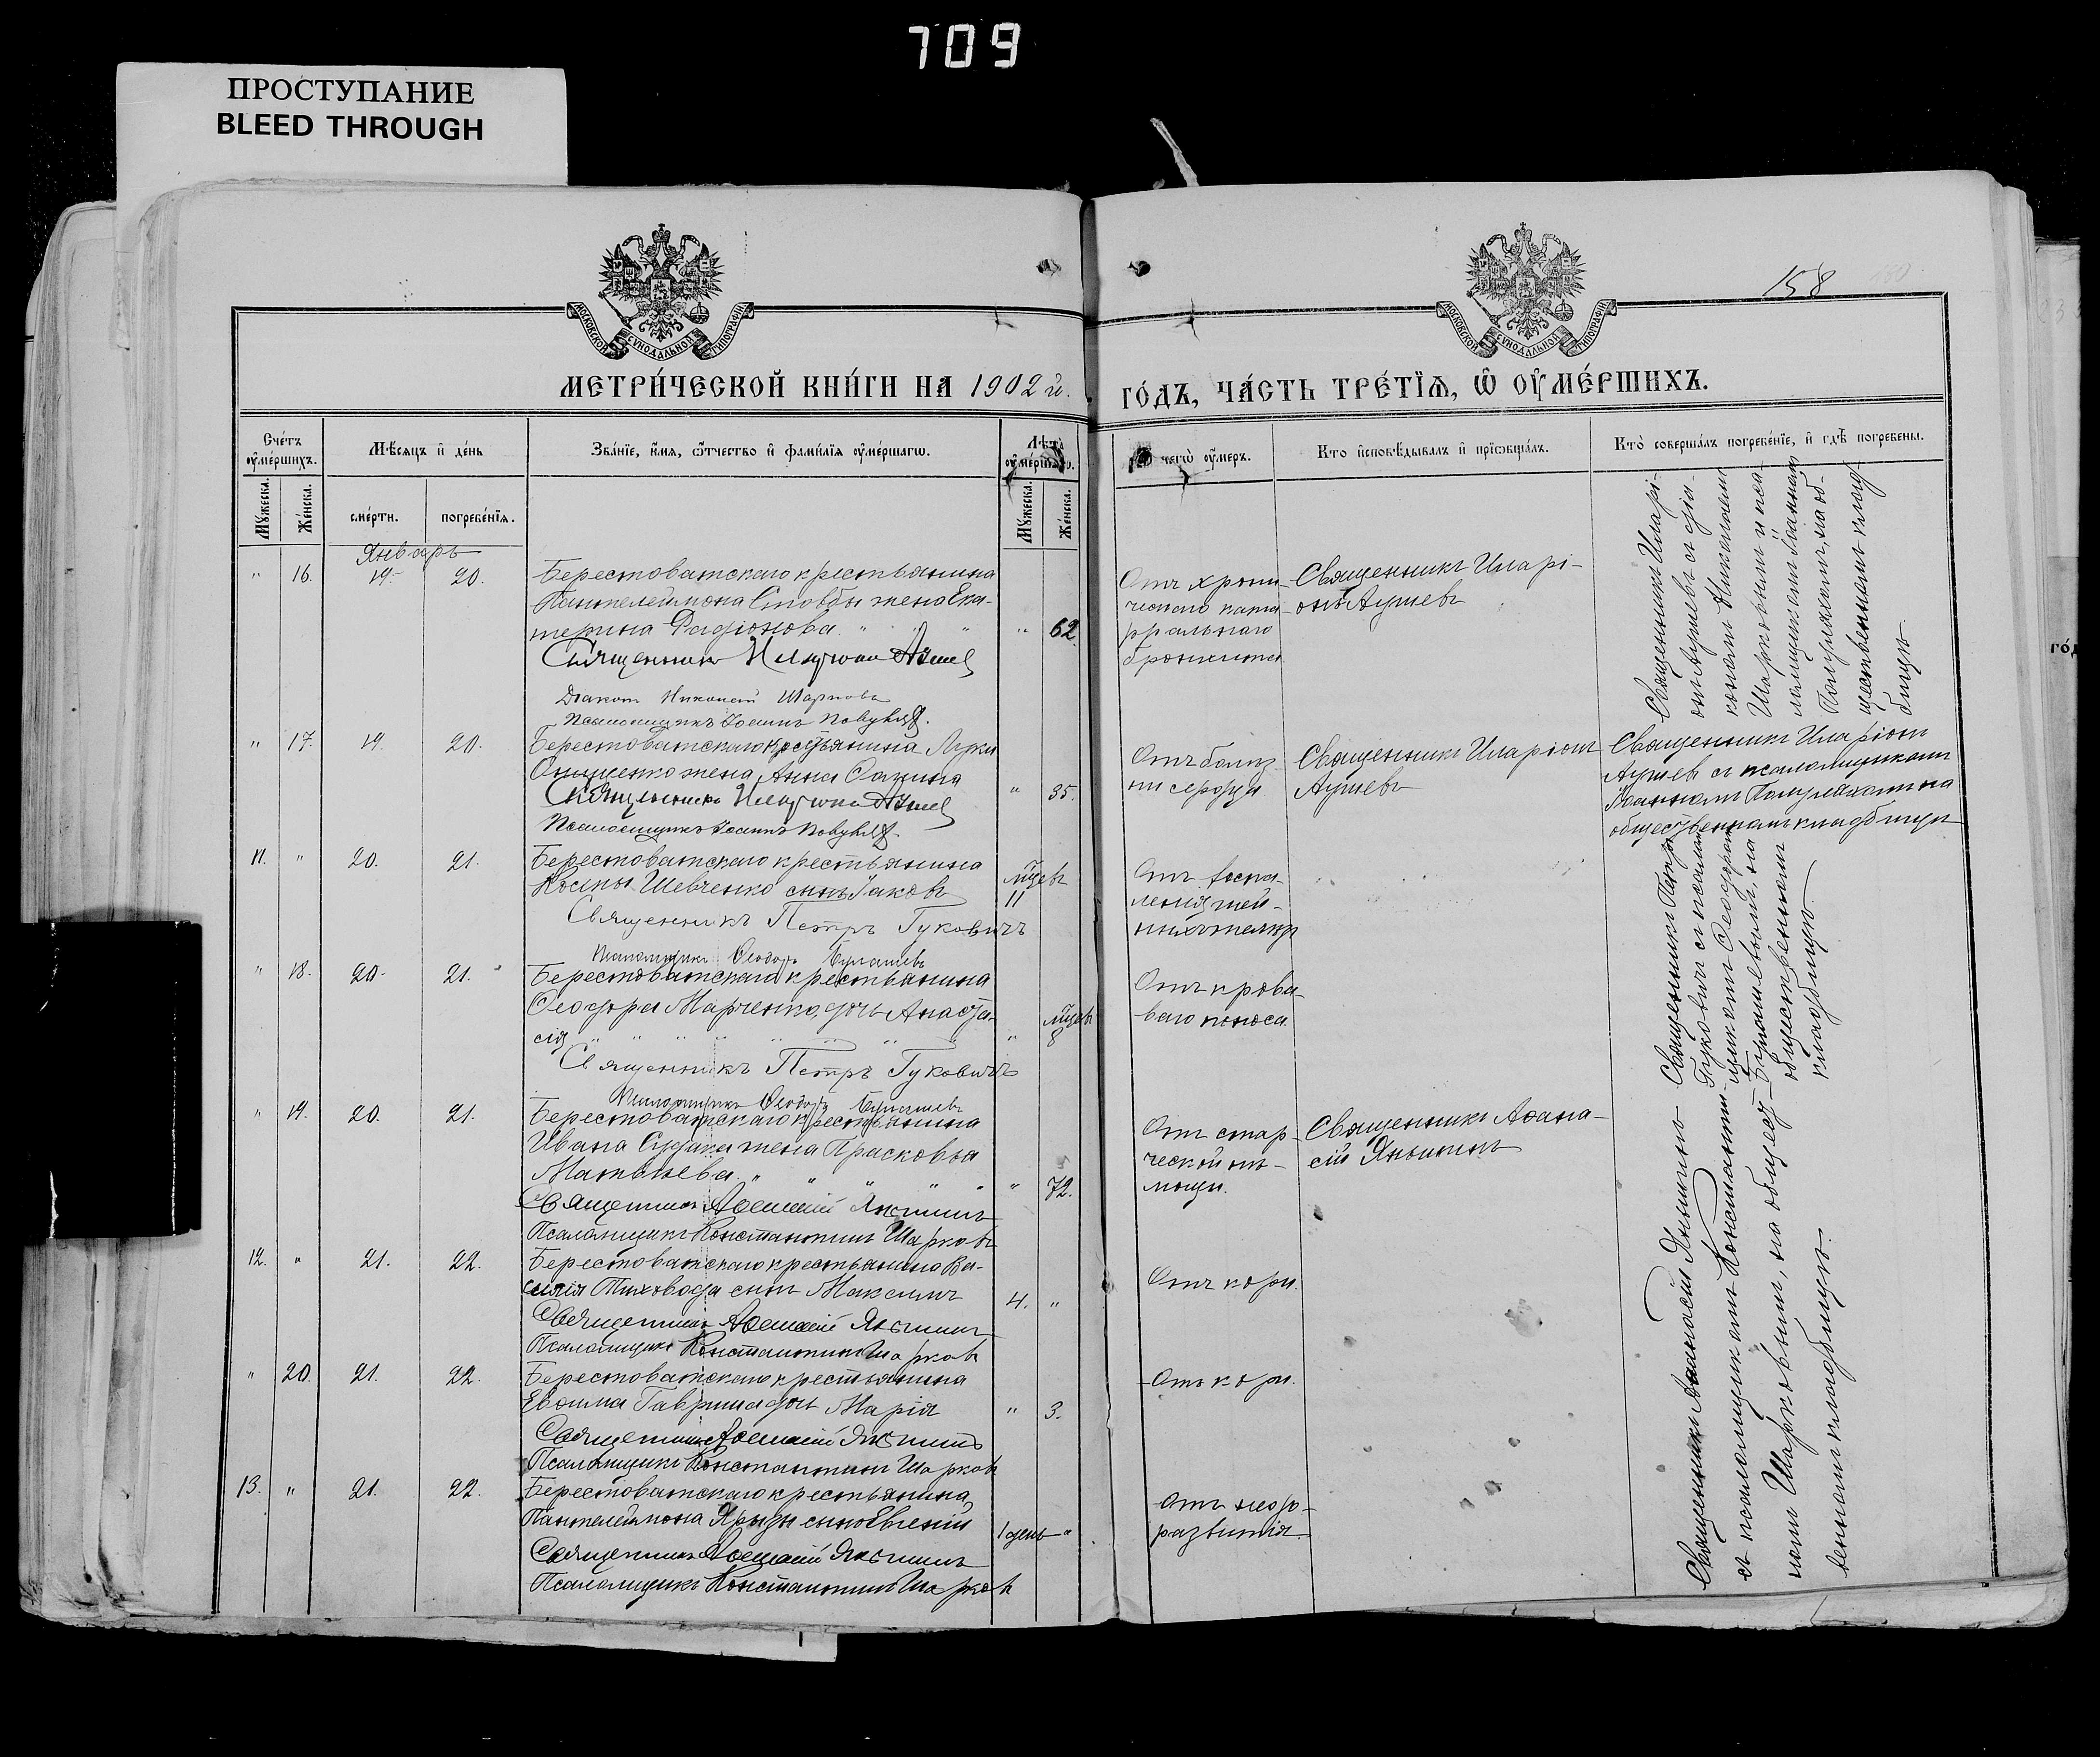 709
ПРОСТУПАНИЕ
BLEED THROUGH
158
МОСКОВСКОЙ СѴНОДАЛЬНОЙ ТИПОГРАФІИ
МОСКОВСКОЙ СѴНОДАЛЬНОЙ ТИПОГРАФІИ
МЕТРИ́ЧЕСКОЙ КНИ́ГИ НА 1902 й.
ГО́ДЪ, ЧА́СТЬ ТРЕ́ТЇѦ, Ѡ ОУ҆МЕ́РШИХЪ.
Сче́тъ оу҆ме́ршихъ.
Мѣ́сяцъ и҆ де́нь
Зва́нїе, и҆́мя, ѻ҆́тчество и҆ фами́лїя оу҆ме́ршагѡ.
Лѣ́та
Мꙋ́жеска.
Же́нска.
сме́рти.
погребе́нїя.
Мꙋ́жеска.
Же́нска.
чегѡ̀ оу҆́меръ.
Кто̀ и҆сповѣ́дывалъ и҆ прїѡбща́лъ.
Кто̀ соверша́лъ погребе́нїе, и҆ гдѣ̀ погребены̀.
Январь
" 16. 19. 20. Берестоватскаго крестьянина
Пантелеймона Стовбы жена Ека-
терина Радіонова. " 62
Священникъ Иларіонъ Ауліевъ
Діаконъ Николай Шарковъ
Псаломщикъ Іоаннъ
Отъ хрони-
ческаго ката-
рральнаго
бронхита
Священникъ Иларі-
онъ Ауліевъ
Священникъ Иларі-
онъ Ауліевъ съ діа-
кономъ Николаемъ
Шарковымъ и пса-
ломщикомъ Іоанномъ
на об-
щественномъ клад-
бищѣ.
" 17. 19. 20. Берестоватскаго крестьянина Луки
Онищенко жена Анна " 35.
Священникъ Иларіонъ Ауліевъ
Псаломщикъ Іоаннъ
Отъ болѣз-
ни сердца
Священникъ Иларіонъ
Ауліевъ
Священникъ Иларіонъ
Ауліевъ съ псаломщикомъ
Іоанномъ на
общественномъ кладбищѣ
11. " 20. 21. Берестоватскаго крестьянина
Космы Шевченко сынъ Іаковъ м̃цевъ 11
Священникъ Петръ Гуковичъ
Псаломщикъ Ѳеодоръ Бугашевъ
Отъ воспа-
ленія шей-
ныхъ желѣзъ
Священникъ Петръ
Гуковичъ съ псалом-
щикомъ Ѳеодоромъ
Бугашевымъ, на
общественномъ
кладбищѣ.
" 18. 20. 21. Берестоватскаго крестьянина
Ѳеодора Марченко, дочь Анаста-
сія " м̃цевъ 8
Священникъ Петръ Гуковичъ
Псаломщикъ Ѳеодоръ Бугашевъ
Отъ крова-
ваго поноса
" 19. 20. 21. Берестоватскаго крестьянина
Ивана жена Прасковья
Матвѣева. " 72.
Священникъ Аѳанасій Яньшинъ
Псаломщикъ Константинъ Шарковъ
Отъ стар-
ческой не-
мощи.
Священникъ Аѳана-
сій Яньшинъ
Священникъ Аѳанасій Яньшинъ
съ псаломщикомъ Константи-
номъ Шарковымъ, на общест-
венномъ кладбищѣ.
12. " 21. 22. Берестоватскаго крестьянина Ва-
силія Тиховода сынъ Максимъ 4. "
Священникъ Аѳанасій Яньшинъ
Псаломщикъ Константинъ Шарковъ
Отъ кори.
" 20. 21. 22. Берестоватскаго крестьянина
Евѳима Гавриша дочь Марія " 3.
Священникъ Аѳанасій Яньшинъ
Псаломщикъ Константинъ Шарковъ
Отъ кори.
13. " 21. 22. Берестоватскаго крестьянина
Пантелеймона сынъ Евгеній 1 день "
Священникъ Аѳанасій Яньшинъ
Псаломщикъ Константинъ Шарковъ
Отъ недо-
развитія.